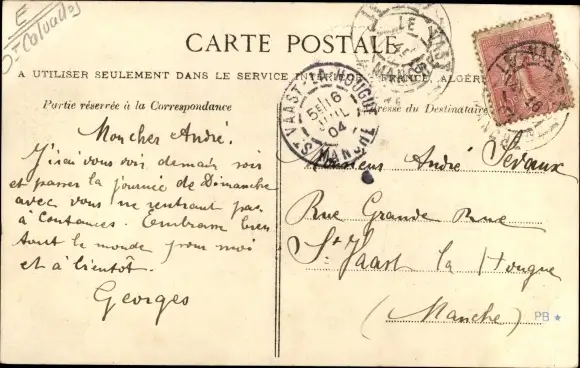 E
St Calvados
CARTE POSTALE
A UTILISER SEULEMENT DANS LE SERVICE INTÉRIEUR FRANCE, ALGÉRIE
Partie réservée à la Correspondance
Adresse du Destinataire
Mon cher André.
J'irai vous voir demain soir
et passer la journée de Dimanche
avec vous ne rentrant pas
à Coutances. Embrasse bien
tout le monde pour moi
et à bientôt.
Georges
Monsieur André Sevaux
Rue Grande Rue
St Vaast la Hougue
(Manche)
ST VAAST-LA-HOUGUE
5E 16
JUIL
04
MANCHE
LE VAST
MANCHE
LE VAST
16
PB